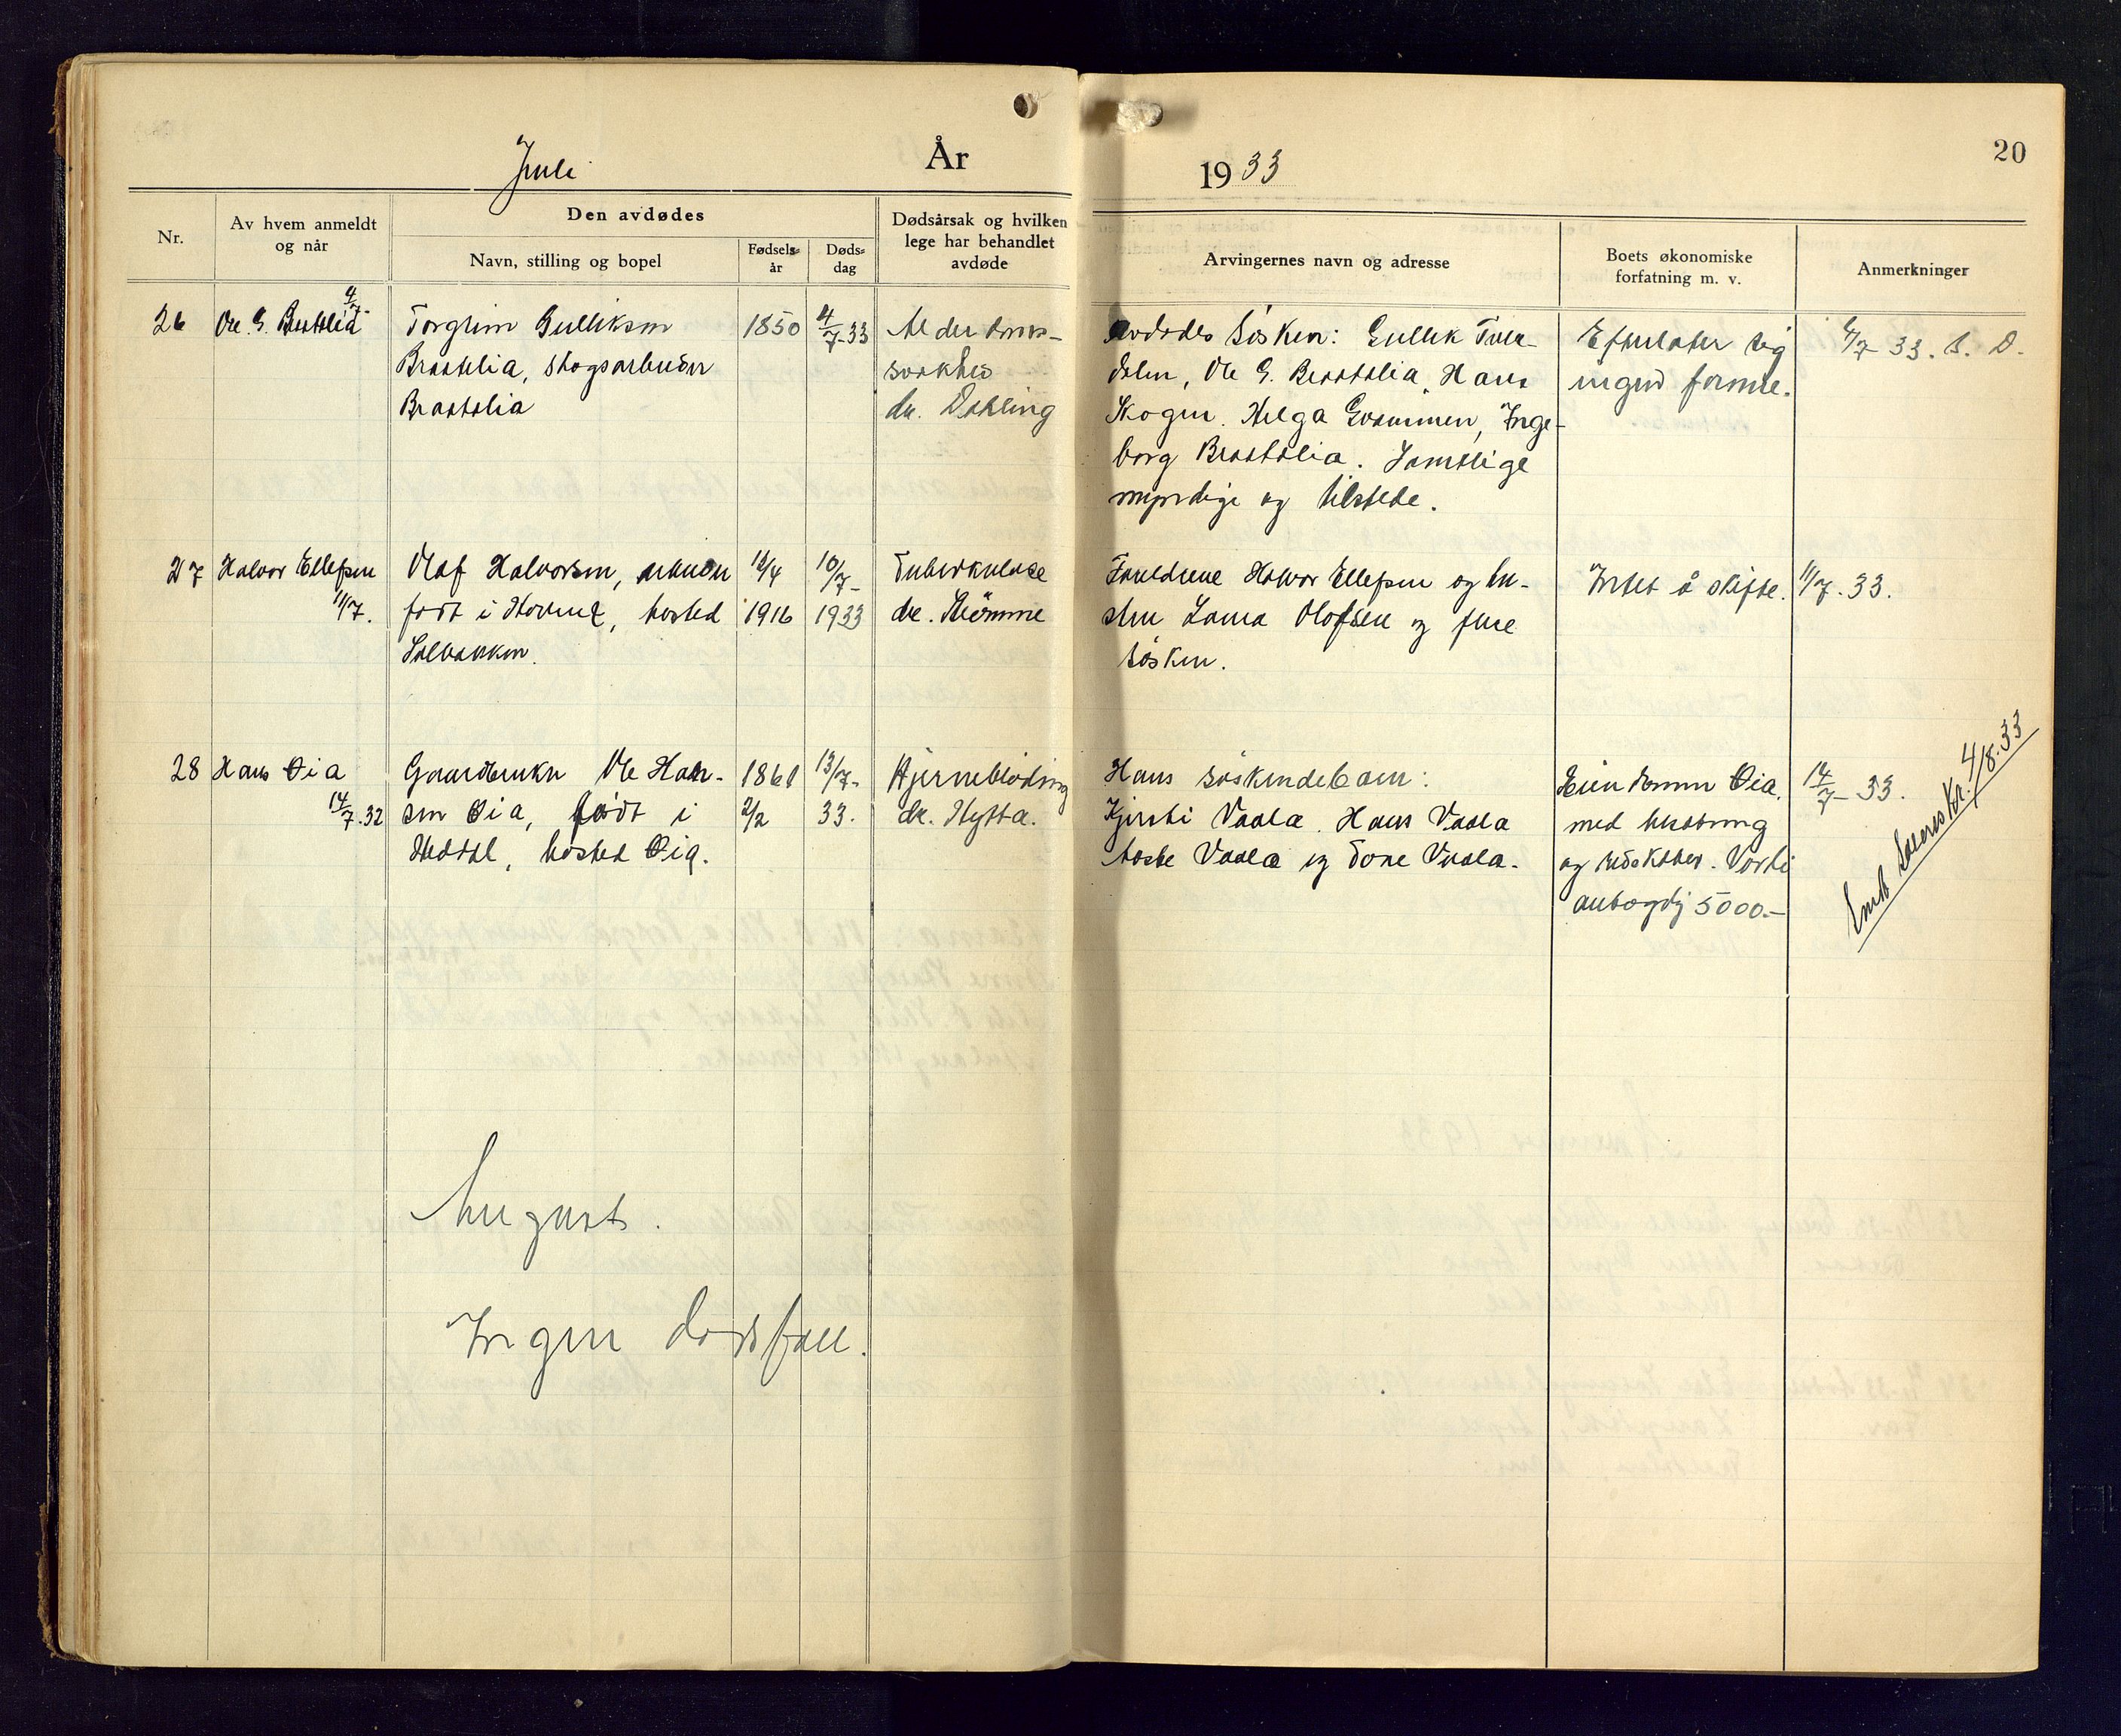 Juli
År
1933
20
Nr.
Av hvem anmeldt
og når
Den avdødes
Navn, stilling og bopel
Fødsels-
år
Døds-
dag
Dødsårsak og hvilken
lege har behandlet
avdøde
Arvingernes navn og adresse
Boets økonomiske
forfatning m. v.
Anmerkninger
26
Ole G. Bratslia
4/7-
Torgrim Gulliksen
Bratslia, skogsarbeider
Bratslia
1850
4/7-33
Alderdoms-
svakhet
dr. Dahling
Avdødes søsken: Gullik
Ole G. Bratslia, Hans
Skogen. Helga Gvammen, Inge-
borg Bratslia. Samtlige
myndige og tilstede.
Efterlater sig
ingen formue.
4/7 33. S. D.
27
Halvor Ellefsen
11/7.
Olaf Halvorsen, arbeider
født i Hovin, bosted
1916
10/7-
1933
Tuberkulose
dr. Strømme
Foreldrene Halvor Ellefsen og hu-
stru Olofsen og fire
søsken.
Intet å skifte.
11/7.33.
28
Hans Øia
14/7.32
Gaardbruker Ole Han-
sen Øia, født i
Heddal, bosted Øia.
1861
2/2
13/7-
33.
Hjerneblødning
dr. Hytta.
Hans søskendebarn:
Kjersti Vaala. Hans Vaala
Aaste Vaala og Tone Vaala.
Eiendommen Øia.
med besetning
og redskaber. Verdi
antagelig 5000.-
14/7-33.
4/8.33
August.
Ingen dødsfall.